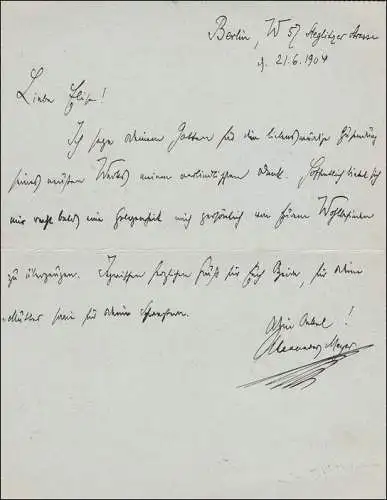 Berlin, W 57 Steglitzer Strasse
d. 21.6.1904
Liebe Elise!
Ich sage deinem Gatten für die liebenswürdige Zusendung
seines neusten Werkes meinen verbindlichsten Dank. Hoffentlich bietet sich
mir recht bald eine Gelegenheit mich persönlich von Eurem Wohlbefinden
zu überzeugen. Inzwischen herzlichen Gruß für Euch Beide, für deine
Mutter sowie für deine Schwestern.
Dein Onkel!
Alexander Meyer